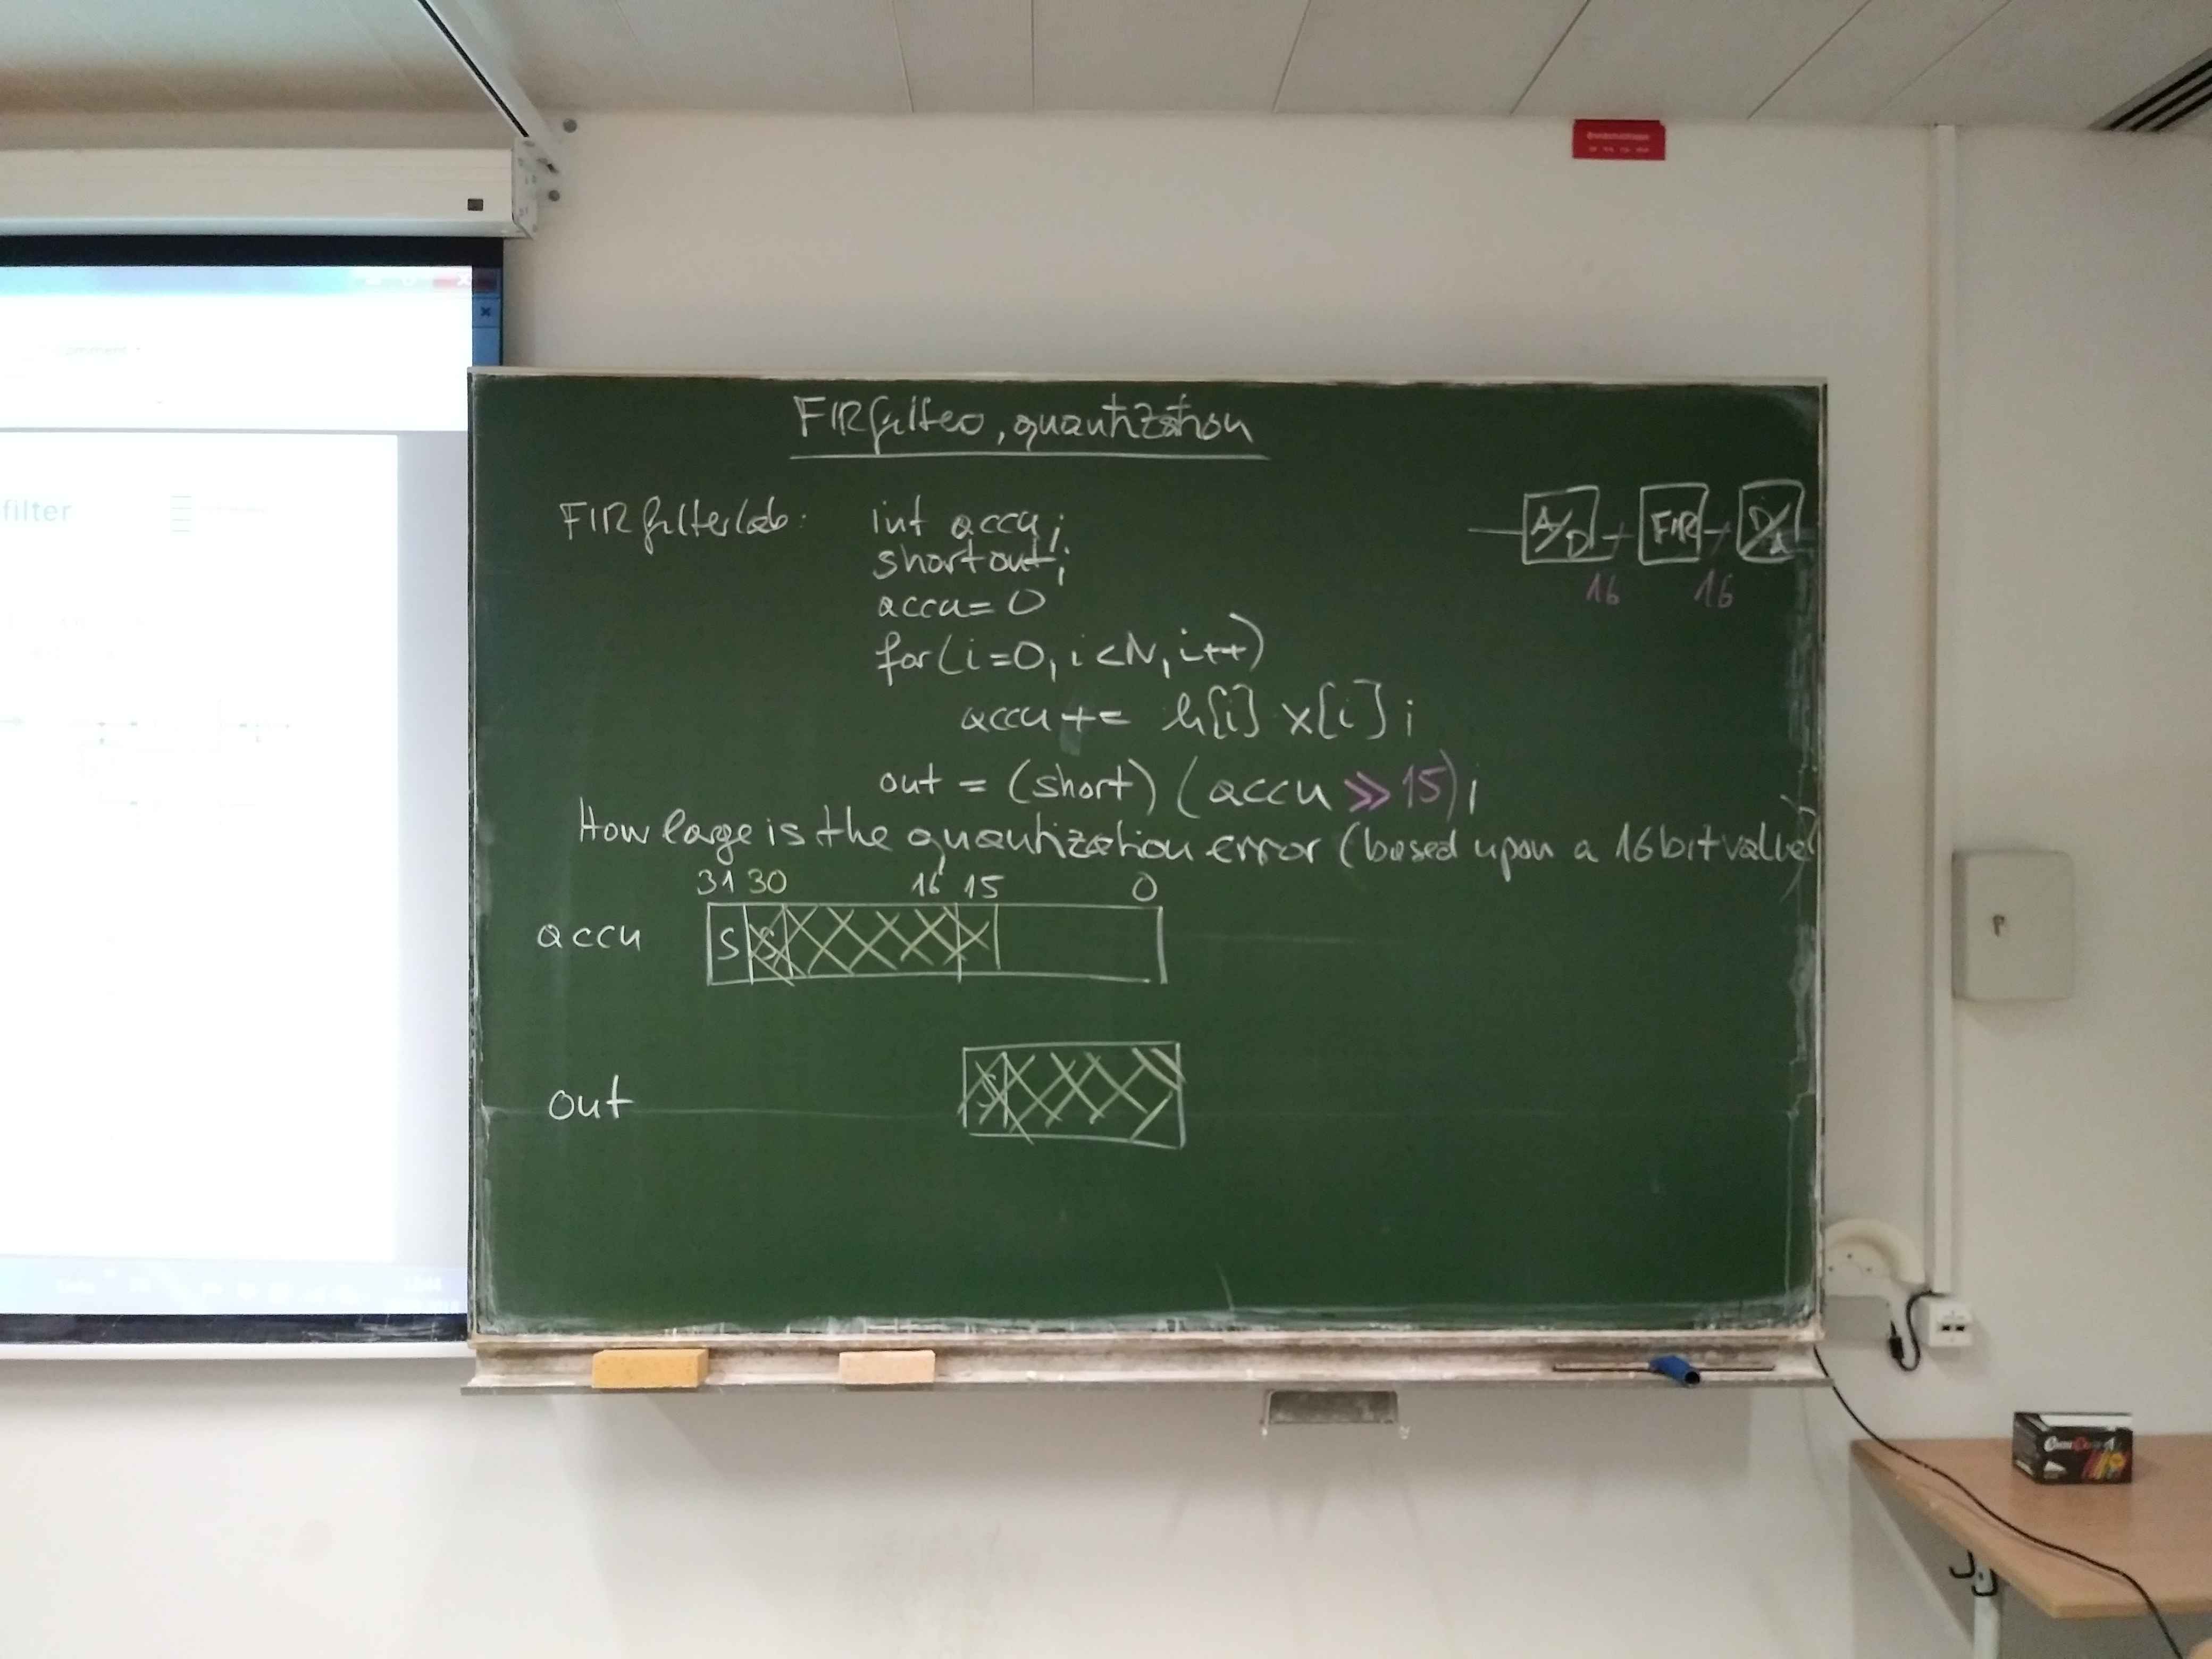 FIR filter, quantization
FIR filter lab: int accu;
short out;
accu = 0
for(i=0, i<N, i++)
accu += h[i] x[i];
out = (short) (accu >> 15);
A/D FIR D/A
16 16
How large is the quantization error (based upon a 16 bit value)
31 30 16 15 0
accu S S
out S
filter